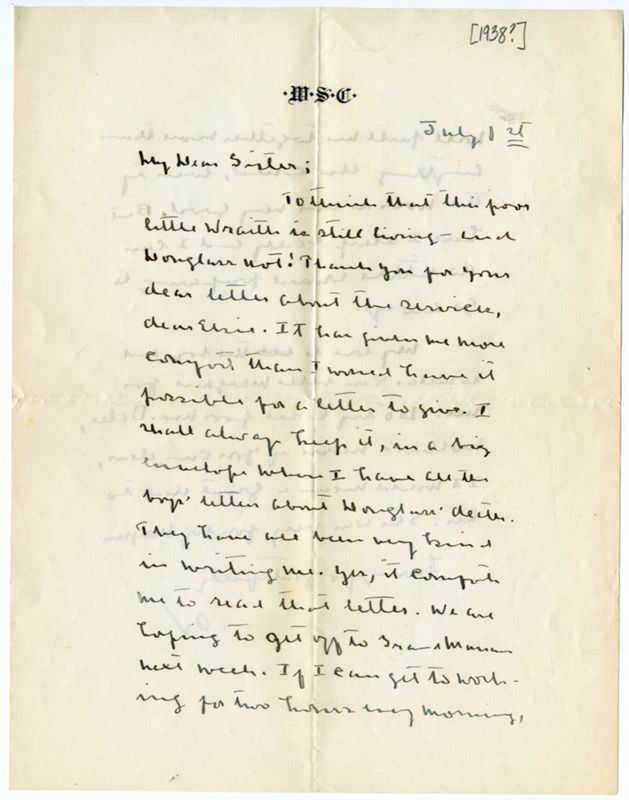 [1938?]
·W·S·C·
July 1st
My Dear Sister;
To think that this poor
little wraith is still living – and
Douglass not! Thank you for your
dear letter about the service,
dear Elsie. It has given me more
comfort than I would have it
possible for a letter to give. I
shall always keep it, in a big
envelope where I have all the
boys' letters about Douglass' death.
They have all been very kind
in writing me. Yes, it comforts
me to read that letter. We are
hoping to get off to Grand Manan
next week. If I can get to work-
ing for two hours every morning,